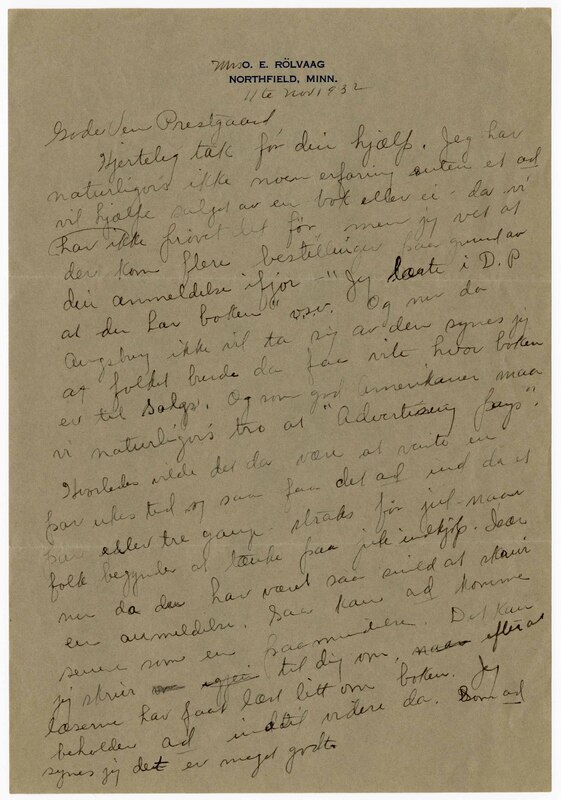 Mrs O. E. RÖLVAAG
NORTHFIELD, MINN.
11te Nov 1932
Gode Ven Prestgaard
Hjertelig tak for din hjælp. Jeg har
naturligvis ikke noen erfaring enten et ad
vil hjælpe salget av en bok eller ei - da vi
har ikke prøvet det før, men jeg vet at
der kom flere bestillinger paa grund av
din anmeldelse ifjor "Jeg læste i D.P
at du har boken" o.s.v. Og nu da
Augsburg ikke vil ta sig av den synes jeg
at folket burde da faa vite hvor boken
er til salgs. Og som god Amerikaner maa
vi naturligvis tro at "Advertising Pays".
Hvorledes vilde det da være at vente en
par ukes tid og saa faa det ad ind da et
par eller tre gange - straks før jul - naar
folk begynder at tænke paa jule indkjøp. Især
nu da du har været saa snild at skrive
en anmeldelse. Saa kan ad komme
senere som en paamindelse. Det kan
jeg skrive til dig om, efter at
læserne har faat læst litt om boken. Jeg
beholder ad indtil videre da. Som ad
synes jeg det er meget godt